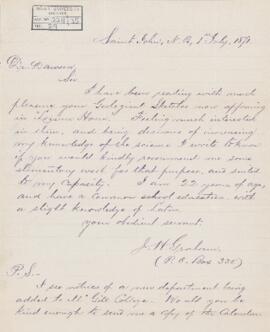 Saint John, N.B., 1st July, 1871
Dr Dawson,
Sir
I have been reading with much
pleasure your Geological Sketches now appearing
in Leisure Hour. Feeling much interested
in them, and being desirous of increasing
my knowledge of the science I wrote to know
if you would kindly recommend me some
elementary work for that purpose, and suited
to my capacity. I am 22 years of age,
and have a common school education, with
a slight knowledge of Latin
your obedient servant.
J. W. Graham
(P.O. Box 330)
P.S.-
I see notices of a new department being
added to McGill College. Would you be
kind enough to send me a copy of the Calendar